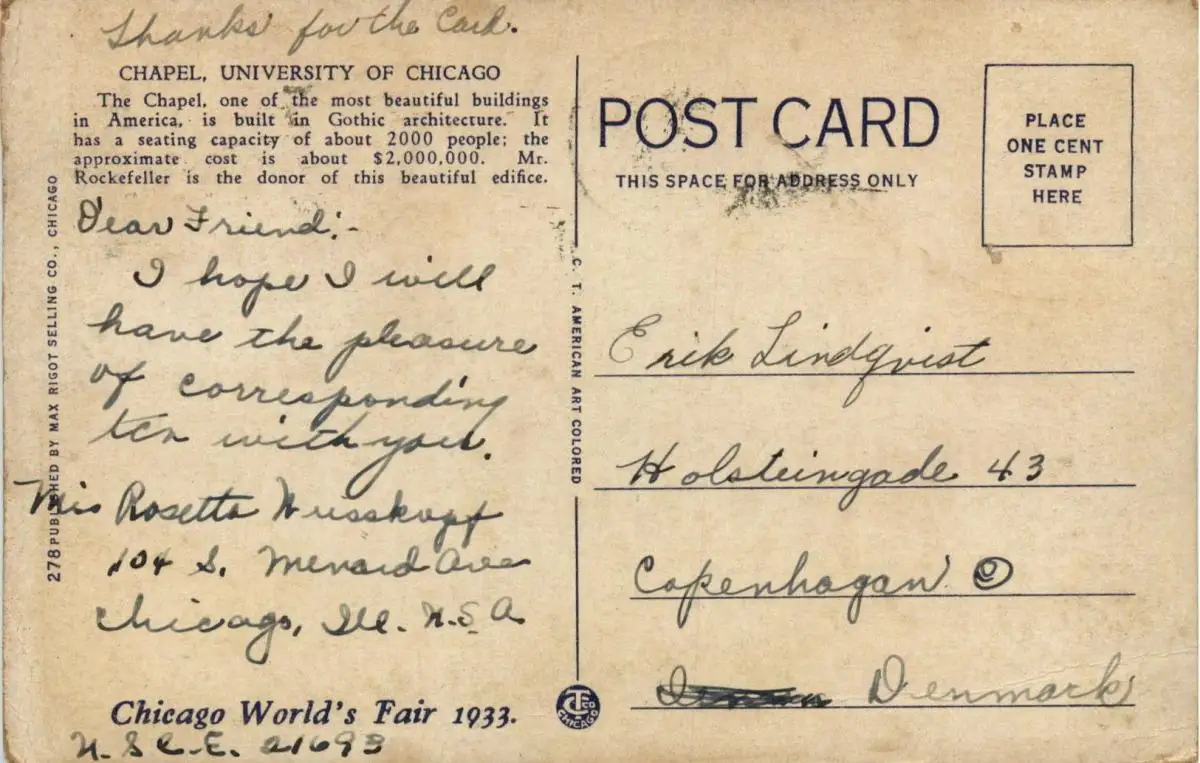 Thanks for the Card.
CHAPEL, UNIVERSITY OF CHICAGO
The Chapel, one of the most beautiful buildings
in America, is built in Gothic architecture. It
has a seating capacity of about 2000 people; the
approximate cost is about $2,000,000. Mr.
Rockefeller is the donor of this beautiful edifice.
Dear Friend:-
I hope I will
have the pleasure
of corresponding
ten with you.
Mis Rosetta Nusskopf
104 S. Menard Ave
Chicago, Ill. U.S.A
Chicago World's Fair 1933.
U.S.C.E. 21693
278 PUBLISHED BY MAX RIGOT SELLING CO., CHICAGO
C. T. AMERICAN ART COLORED
CT CO
CHICAGO
POST CARD
THIS SPACE FOR ADDRESS ONLY
PLACE
ONE CENT
STAMP
HERE
Erik Lindqvist
Holsteingade 43
Copenhagan
Denmark